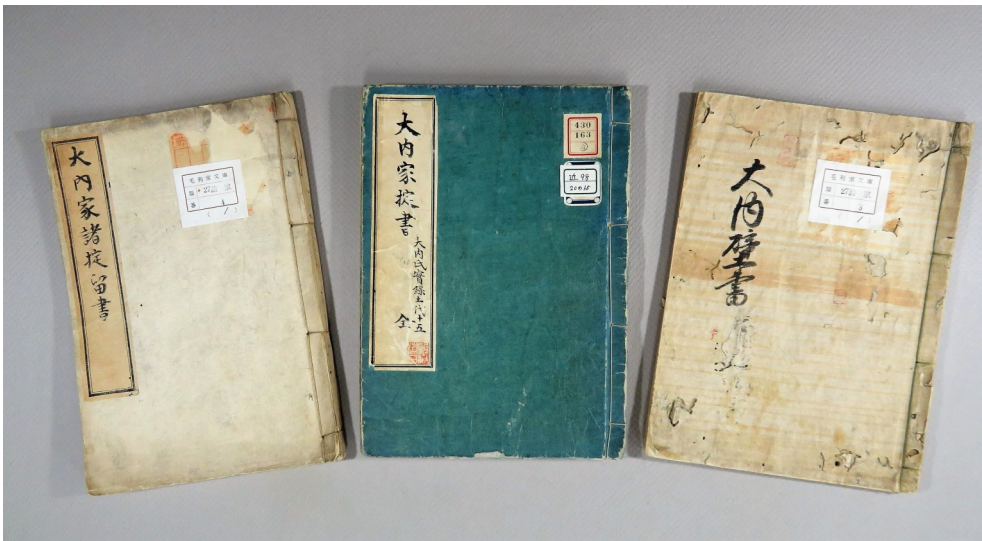 大内家諸掟留書
毛利家文庫
大内家掟書
大内氏實録土代十五
全
430
163
大内壁書
毛利家文庫